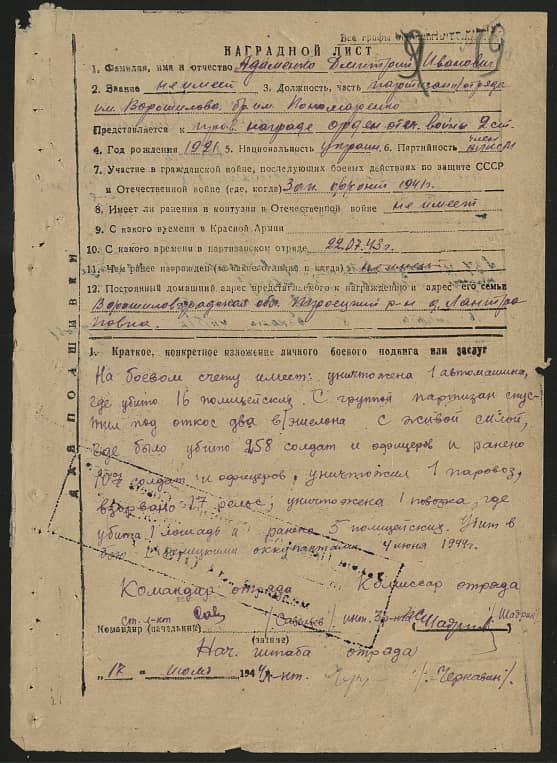 Все графы
9 19
НАГРАДНОЙ ЛИСТ
1. Фамилия, имя и отчество Адаменко Дмитрий Иванович
2. Звание не имеет 3. Должность, часть партизан отряда
им Ворошилова, бр. им Пономаренко
Представляется к прав. награде орден отеч. войны 2 ст.
4. Год рождения 1921 5. Национальность украин. 6. Партийность член ВЛКСМ
7. Участие в гражданской войне, последующих боевых действиях по защите СССР
и Отечественной войне (где, когда) Зап. фронт 1941 г.
8. Имеет ли ранения и контузии в Отечественной войне не имеет
9. С какого времени в Красной Армии
10. С какого времени в партизанском отряде 22.07.43 г.
11. Чем ранее награжден (за какие отличия и когда)
12. Постоянный домашний адрес представляемого к награждению и адрес его семьи
Ворошиловградская обл. р-н д.
ДЛЯ ПОДШИВКИ
I. Краткое, конкретное изложение личного боевого подвига или заслуг
На боевом счету имеет: уничтожена 1 автомашина,
где убито 16 полицейских. С группой партизан спус-
тил под откос два в/эшелона с живой силой,
где было убито 258 солдат и офицеров и ранено
солдат и офицеров, уничтожил 1 паровоз,
взорвано 17 рельс, уничтожена 1 повозка, где
убита 1 лошадь и ранено 5 полицейских. Убит в
бою с немецкими оккупантами 4 июня 1944 г.
Командир отряда Комиссар отряда
ст. л-нт /Савельев/ инт. /Шадрин/
Командир (начальник)
(звание)
Нач. штаба отряда
"17" 194 л-нт. /Чернавин/.